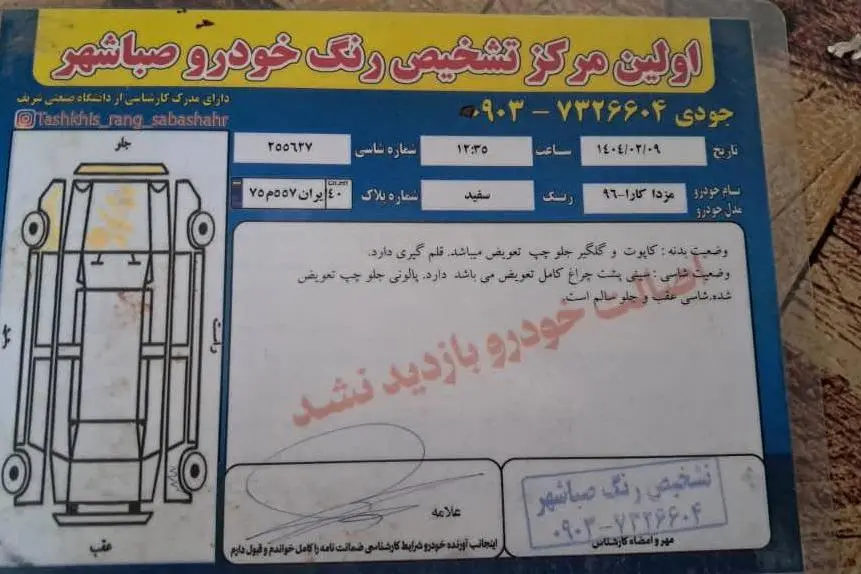 اولین مرکز تشخیص رنگ خودرو صباشهر
جودی ۷۳۲۶۶۰۴ - ۰۹۰۳
دارای مدرک کارشناسی از دانشگاه صنعتی شریف
Tashkhis_rang_sabashahr
تاریخ ۱۴۰۴/۰۲/۰۹ ساعت ۱۲:۳۵ شماره شاسی ۲۵۵۶۲۷
نام خودرو مدل خودرو مزدا کارا-۹۶ رنگ سفید شماره پلاک ایران ۴۰ ۵۵۷م۷۵
جلو
راست
چپ
عقب
وضعیت بدنه : کاپوت و گلگیر جلو چپ تعویض میباشد. قلم گیری دارد.
وضعیت شاسی : سینی پشت چراغ کامل تعویض می باشد دارد. پالونی جلو چپ تعویض
شده.شاسی عقب و جلو سالم است.
اصالت خودرو بازدید نشد
تشخیص رنگ صباشهر
۰۹۰۳-۷۳۲۶۶۰۴
مهر و امضاء کارشناس
علامه
اینجانب آورنده خودرو شرایط کارشناسی ضمانت نامه را کامل خواندم و قبول دارم